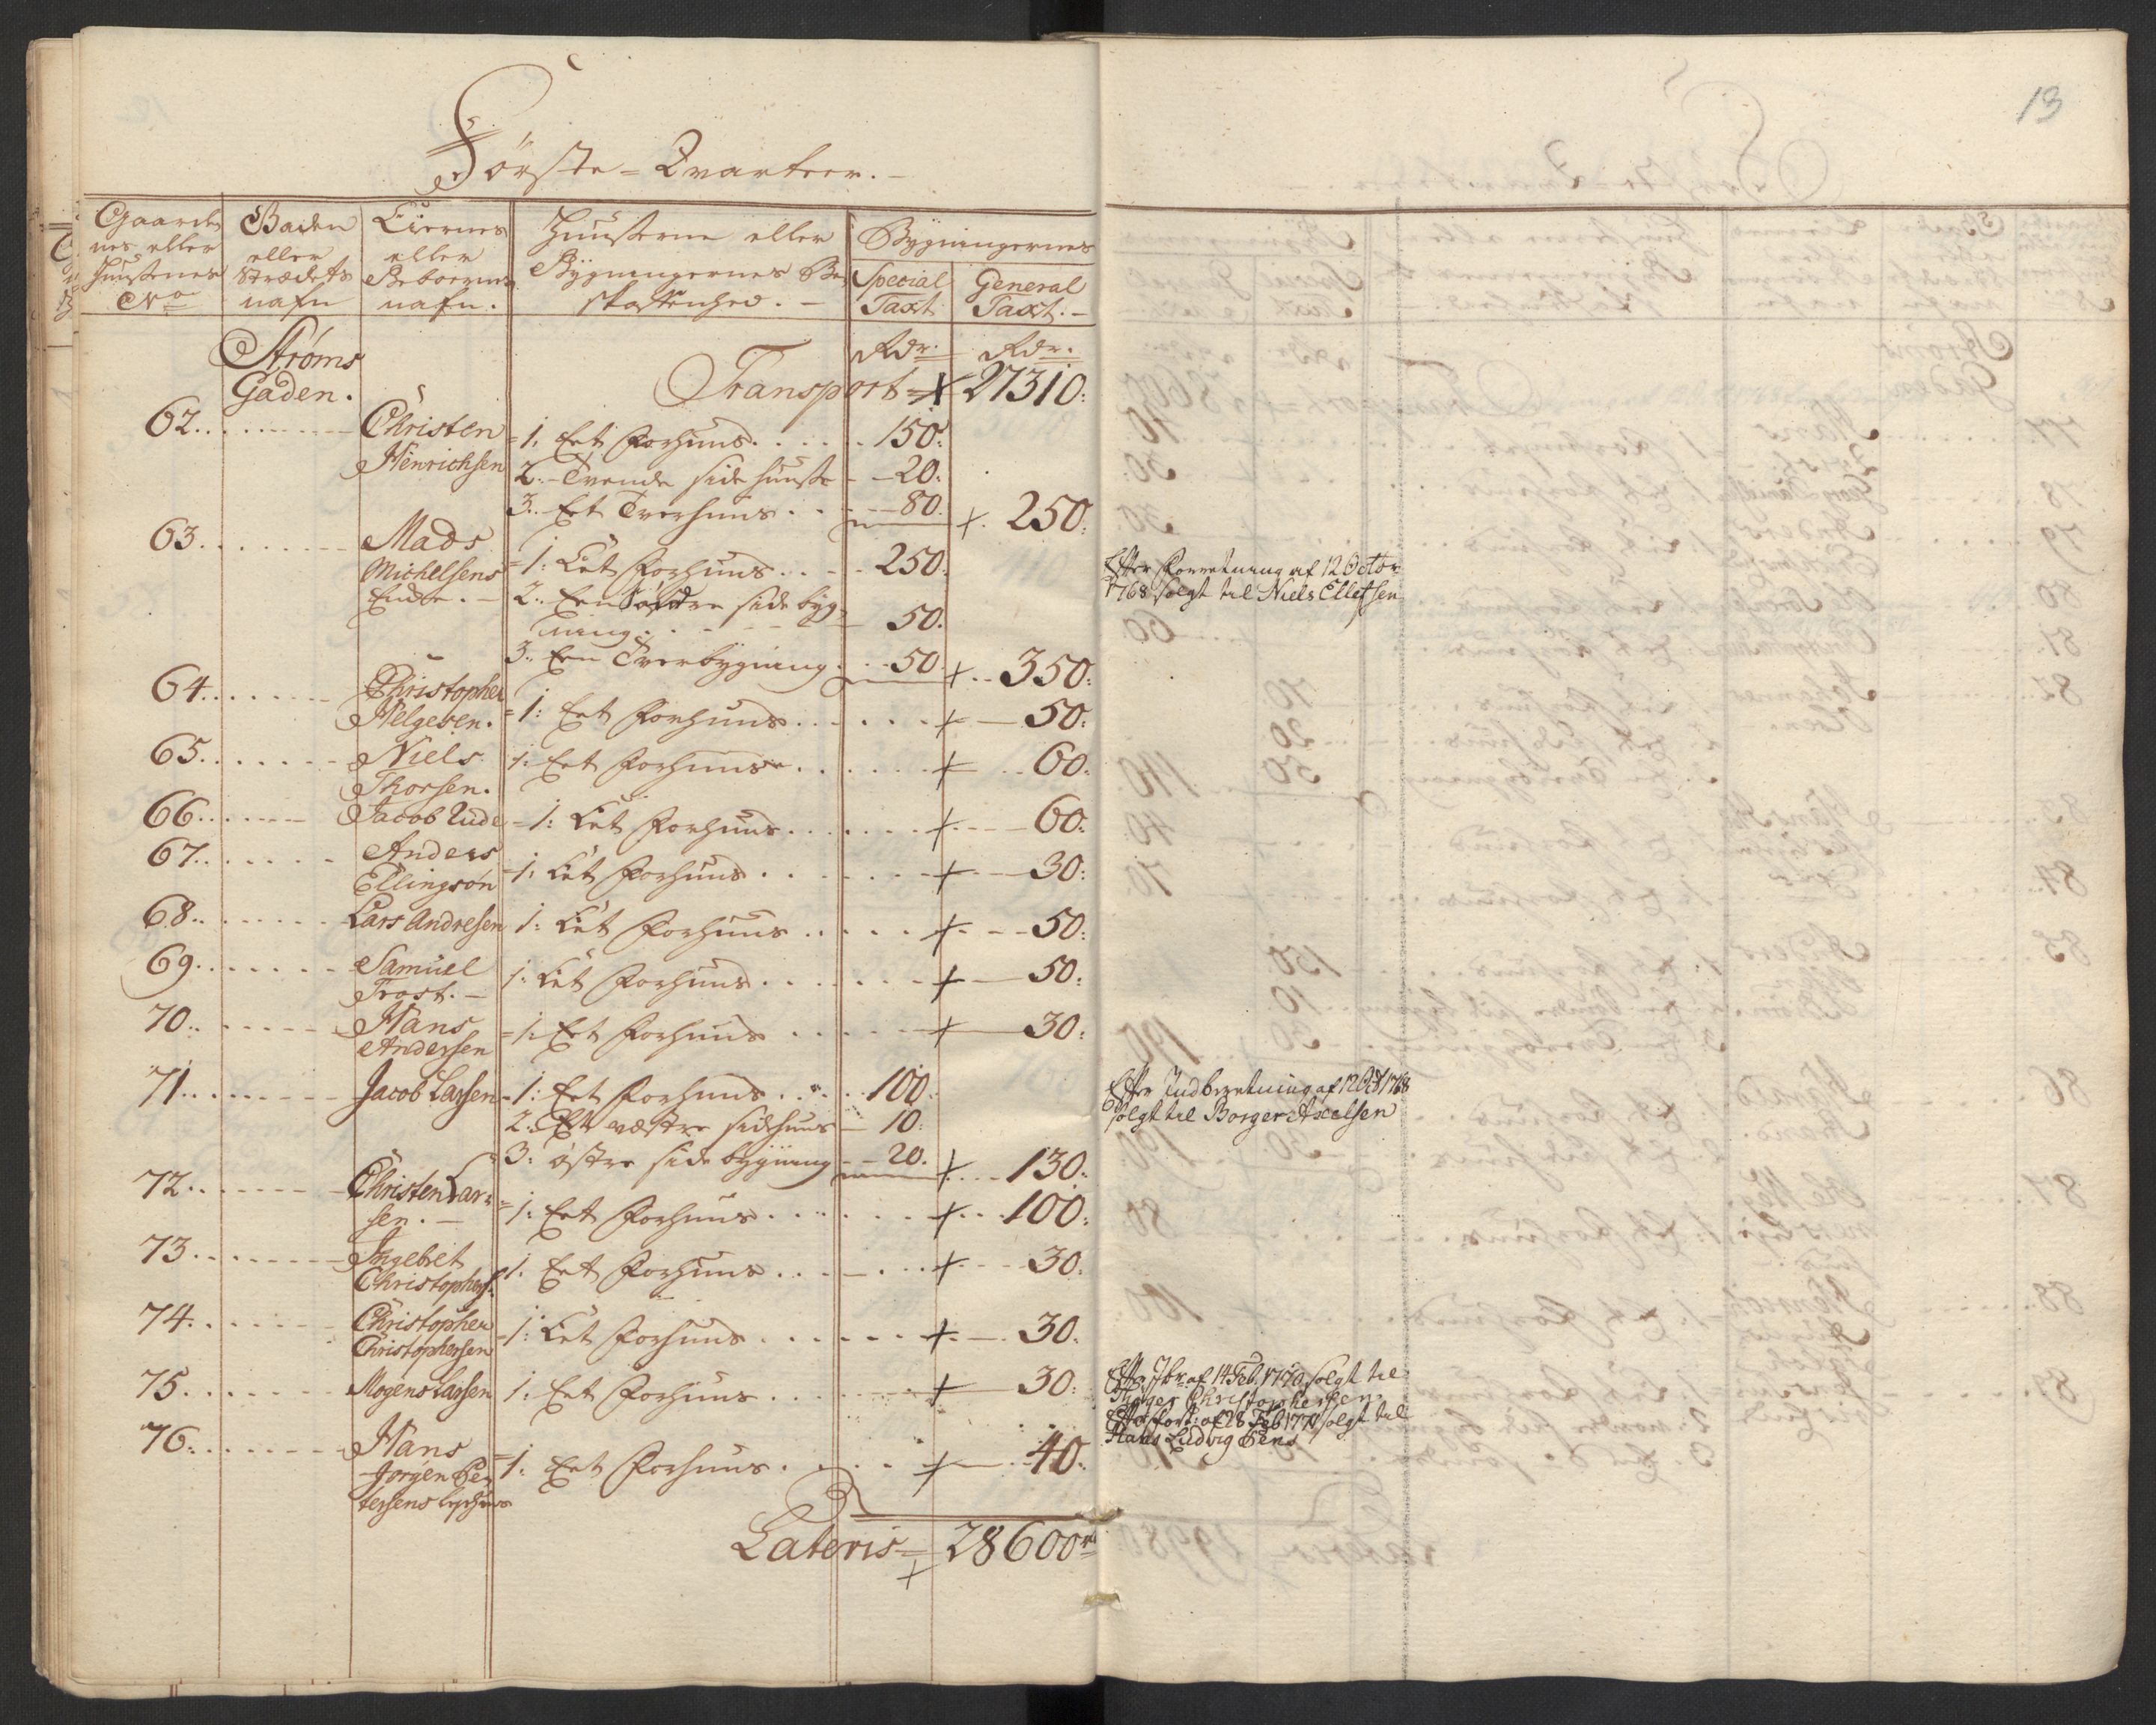 Første-Qvarteer.
Gaarde
nes eller
Huusenes
No
Gaden
eller
Strædets
nafn
Eiernes
eller
Beboernes
nafn.
Huusene eller
Bygningernes Be-
skaffenhed.
Bygningernes
Special
Taxt
General
Taxt.
Rdr. Rdr.
Strøms
Gaden.
Transport 27310.
62. Christen
Henrichsen
1. Eet Forhuus 150.
2. Tvende side huuse 20.
3. Eet Tverhuus 80. 250.
63. Mads
Michelsens
Encke.
1. Eet Forhuus 250.
2. Een Søndre side byg-
ning 50.
3. Een Tverbygning 50. 350.
64. Christopher
Helgesen. 1. Eet Forhuus 50.
65. Niels
Thorsen. 1. Eet Forhuus 60.
66. Jacob Rude 1. Eet Forhuus 60.
67. Anders
Ellingsøn 1. Eet Forhuus 30.
68. Lars Andresen 1. Eet Forhuus 50.
69. Samuel
Trost. 1. Eet Forhuus 50.
70. Hans
Andersen 1. Eet Forhuus 30.
71. Jacob Larsen 1. Eet Forhuus 100.
2. Et væstre sidehuus 10.
3. østre side bygning 20. 130.
72. Christen Lar-
sen. 1. Eet Forhuus 100.
73. Ingebret
Christophers. 1. Eet Forhuus 30.
74. Christopher
Christophersen 1. Eet Forhuus 30.
75. Mogens Larsen 1. Eet Forhuus 30.
76. Hans
Jørgen Pe-
tersens
1. Eet Forhuus 40.
Lateris 28600
13
Efter Forretning af 12 Octor
1768 solgt til Niels Ellefsen
Efter Indberetning af 12 Oct 1768
solgt til Borger Axelsen
af 14 Feb. 1770 solgt til
Christophersen
af 28 Feb 1770 solgt til
Hans Ludvig Bens